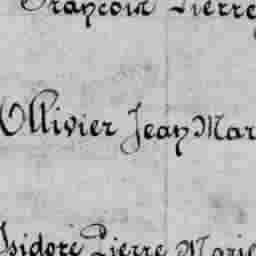 François Pierre
Ollivier Jean Mar
Isidore Pierre Marie